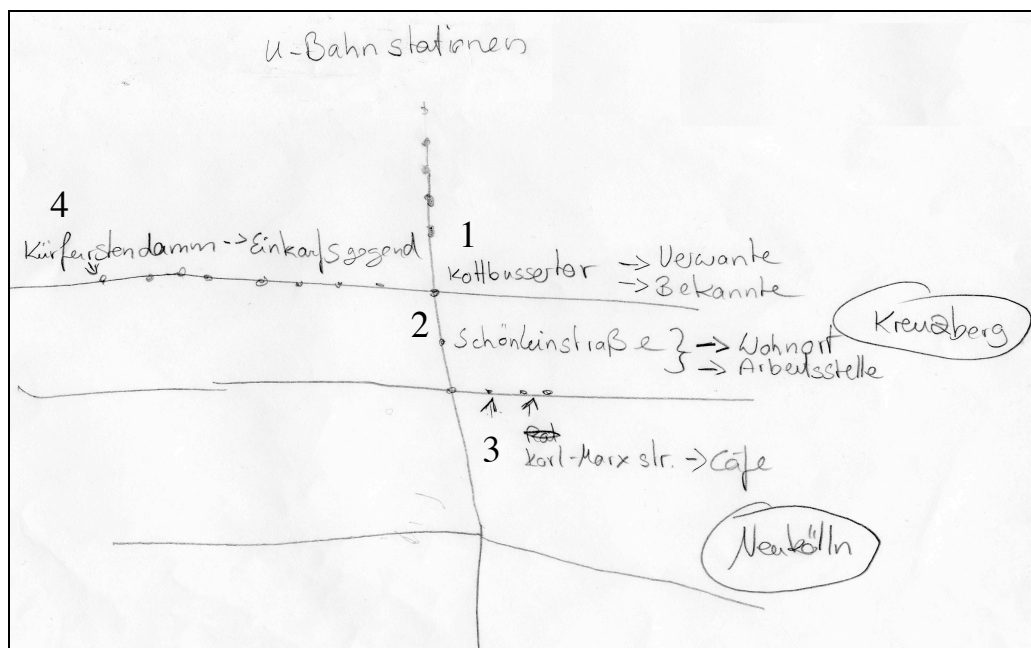 U-Bahnstationen
4
Kürfurstendamm -> Einkaufsgegend
1
Kottbussertor -> Verwante
-> Bekannte
Kreuzberg
2
Schönleinstraße } -> Wohnort
-> Arbeitsstelle
3
Rat
Karl-Marx str. -> Cafe
Neukölln